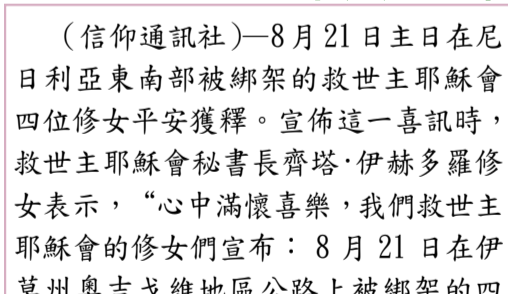 （信仰通訊社）—8月21日主日在尼
日利亞東南部被綁架的救世主耶穌會
四位修女平安獲釋。宣佈這一喜訊時，
救世主耶穌會秘書長齊塔·伊赫多羅修
女表示，“心中滿懷喜樂，我們救世主
耶穌會的修女們宣布：8月21日在伊
莫州奧吉戈維地區公路上被綁架的四